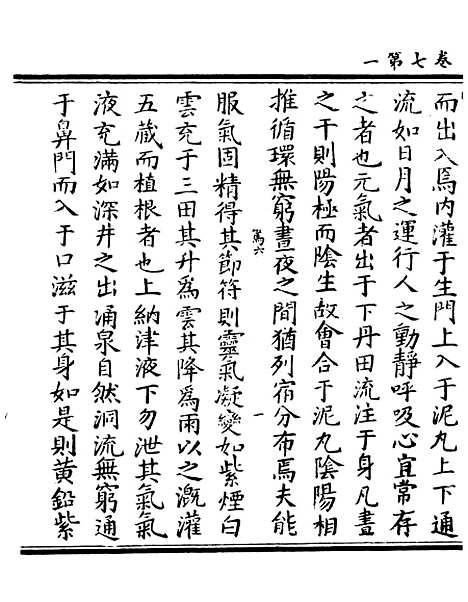 卷七第一
而出入焉內灌于生門上入于泥丸上下通
流如日月之運行人之動靜呼吸心宜常存
之者也元氣者出于下丹田流注于身凡晝
之干則陽極而陰生故會合于泥丸陰陽相
推循環無窮晝夜之間猶列宿分布焉夫能
篤六 一
服氣固精得其節符則靈氣凝變如紫煙白
雲充于三田其升爲雲其降爲雨以之溉灌
五藏而植根者也上納津液下勿泄其氣氣
液充滿如深井之出涌泉自然洞流無窮通
于鼻門而入于口滋于其身如是則黄鉛紫